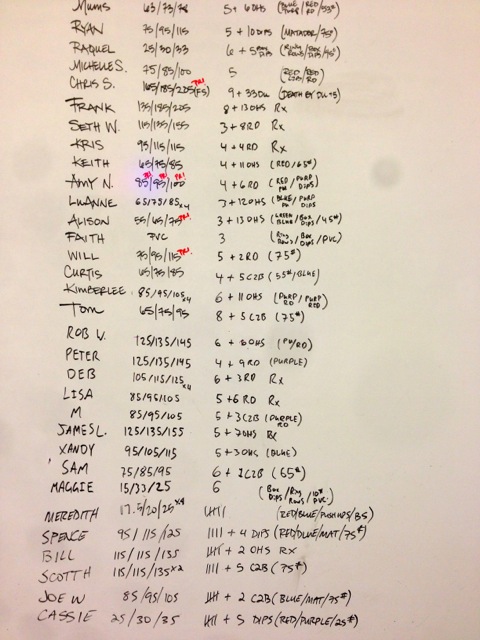 Mums 65/75/78 5 + 6 OHS (BLUE PURP/RED RD/55#)
RYAN 75/95/115 5 + 10 DIPS (MATADOR/75#)
RAQUEL 25/30/33 6 + 5 BOX DIPS (RING ROWS/BOX DIPS/45#)
MICHELLE S. 75/85/100 5 (RED/RED)
CHRIS S. 165/185/225 (FS) PR! 9 + 33 DU (DEATH BY DU +5)
FRANK 135/185/205 8 + 13 OHS Rx
SETH W. 115/135/155 3 + 8 RD Rx
KRIS 95/115/115 4 + 4 RD Rx
KEITH 65/75/85 4 + 11 OHS (RED/65#)
AMY N. 85/95/100 PR! PR! PR! 4 + 6 RD (RED PU/PURP DIPS)
LUANNE 65/75/85 x4 3 + 12 OHS (BLUE PU/PURP DIPS)
ALISON 55/65/75 PR! 3 + 13 OHS (GREEN BLUE/BOX DIPS/45#)
FAITH PVC 3 (RING ROWS/BOX DIPS/PVC)
WILL 75/95/115 PR! 5 + 2 RD (75#)
CURTIS 65/75/85 4 + 5 C2B (55#/BLUE)
KIMBERLEE 85/95/105 x4 6 + 11 OHS (PURP RD/PURP RED)
TOM 65/75/95 8 + 5 C2B (75#)
ROB V. 125/135/145 6 + OHS (PU/RD)
PETER 125/135/145 4 + 9 RD (PURPLE)
DEB 105/115/125 x4 6 + 3 RD Rx
LISA 85/95/105 5 + 6 RD Rx
M 85/95/105 5 + 3 C2B (PURPLE RD)
JAMES L. 125/135/155 5 + 7 OHS Rx
XANDY 95/105/115 5 + 3 OHS (BLUE)
SAM 75/85/95 6 + 2 C2B (65#)
MAGGIE 15/33/25 6 (BOX DIPS/RING ROWS/10# PVC)
MEREDITH 17.5/20/25 x4 (RED/BLUE/PUSHUPS/BS)
SPENCE 95/115/125 IIII + 4 DIPS (RED/BLUE/MAT/75#)
BILL 115/115/135 + 2 OHS RX
SCOTT H 115/115/135 x2 IIII + 5 C2B (75#)
JOE W 85/95/105 + 2 C2B (BLUE/MAT/75#)
CASSIE 25/30/35 + 5 DIPS (RED/PURPLE/25#)